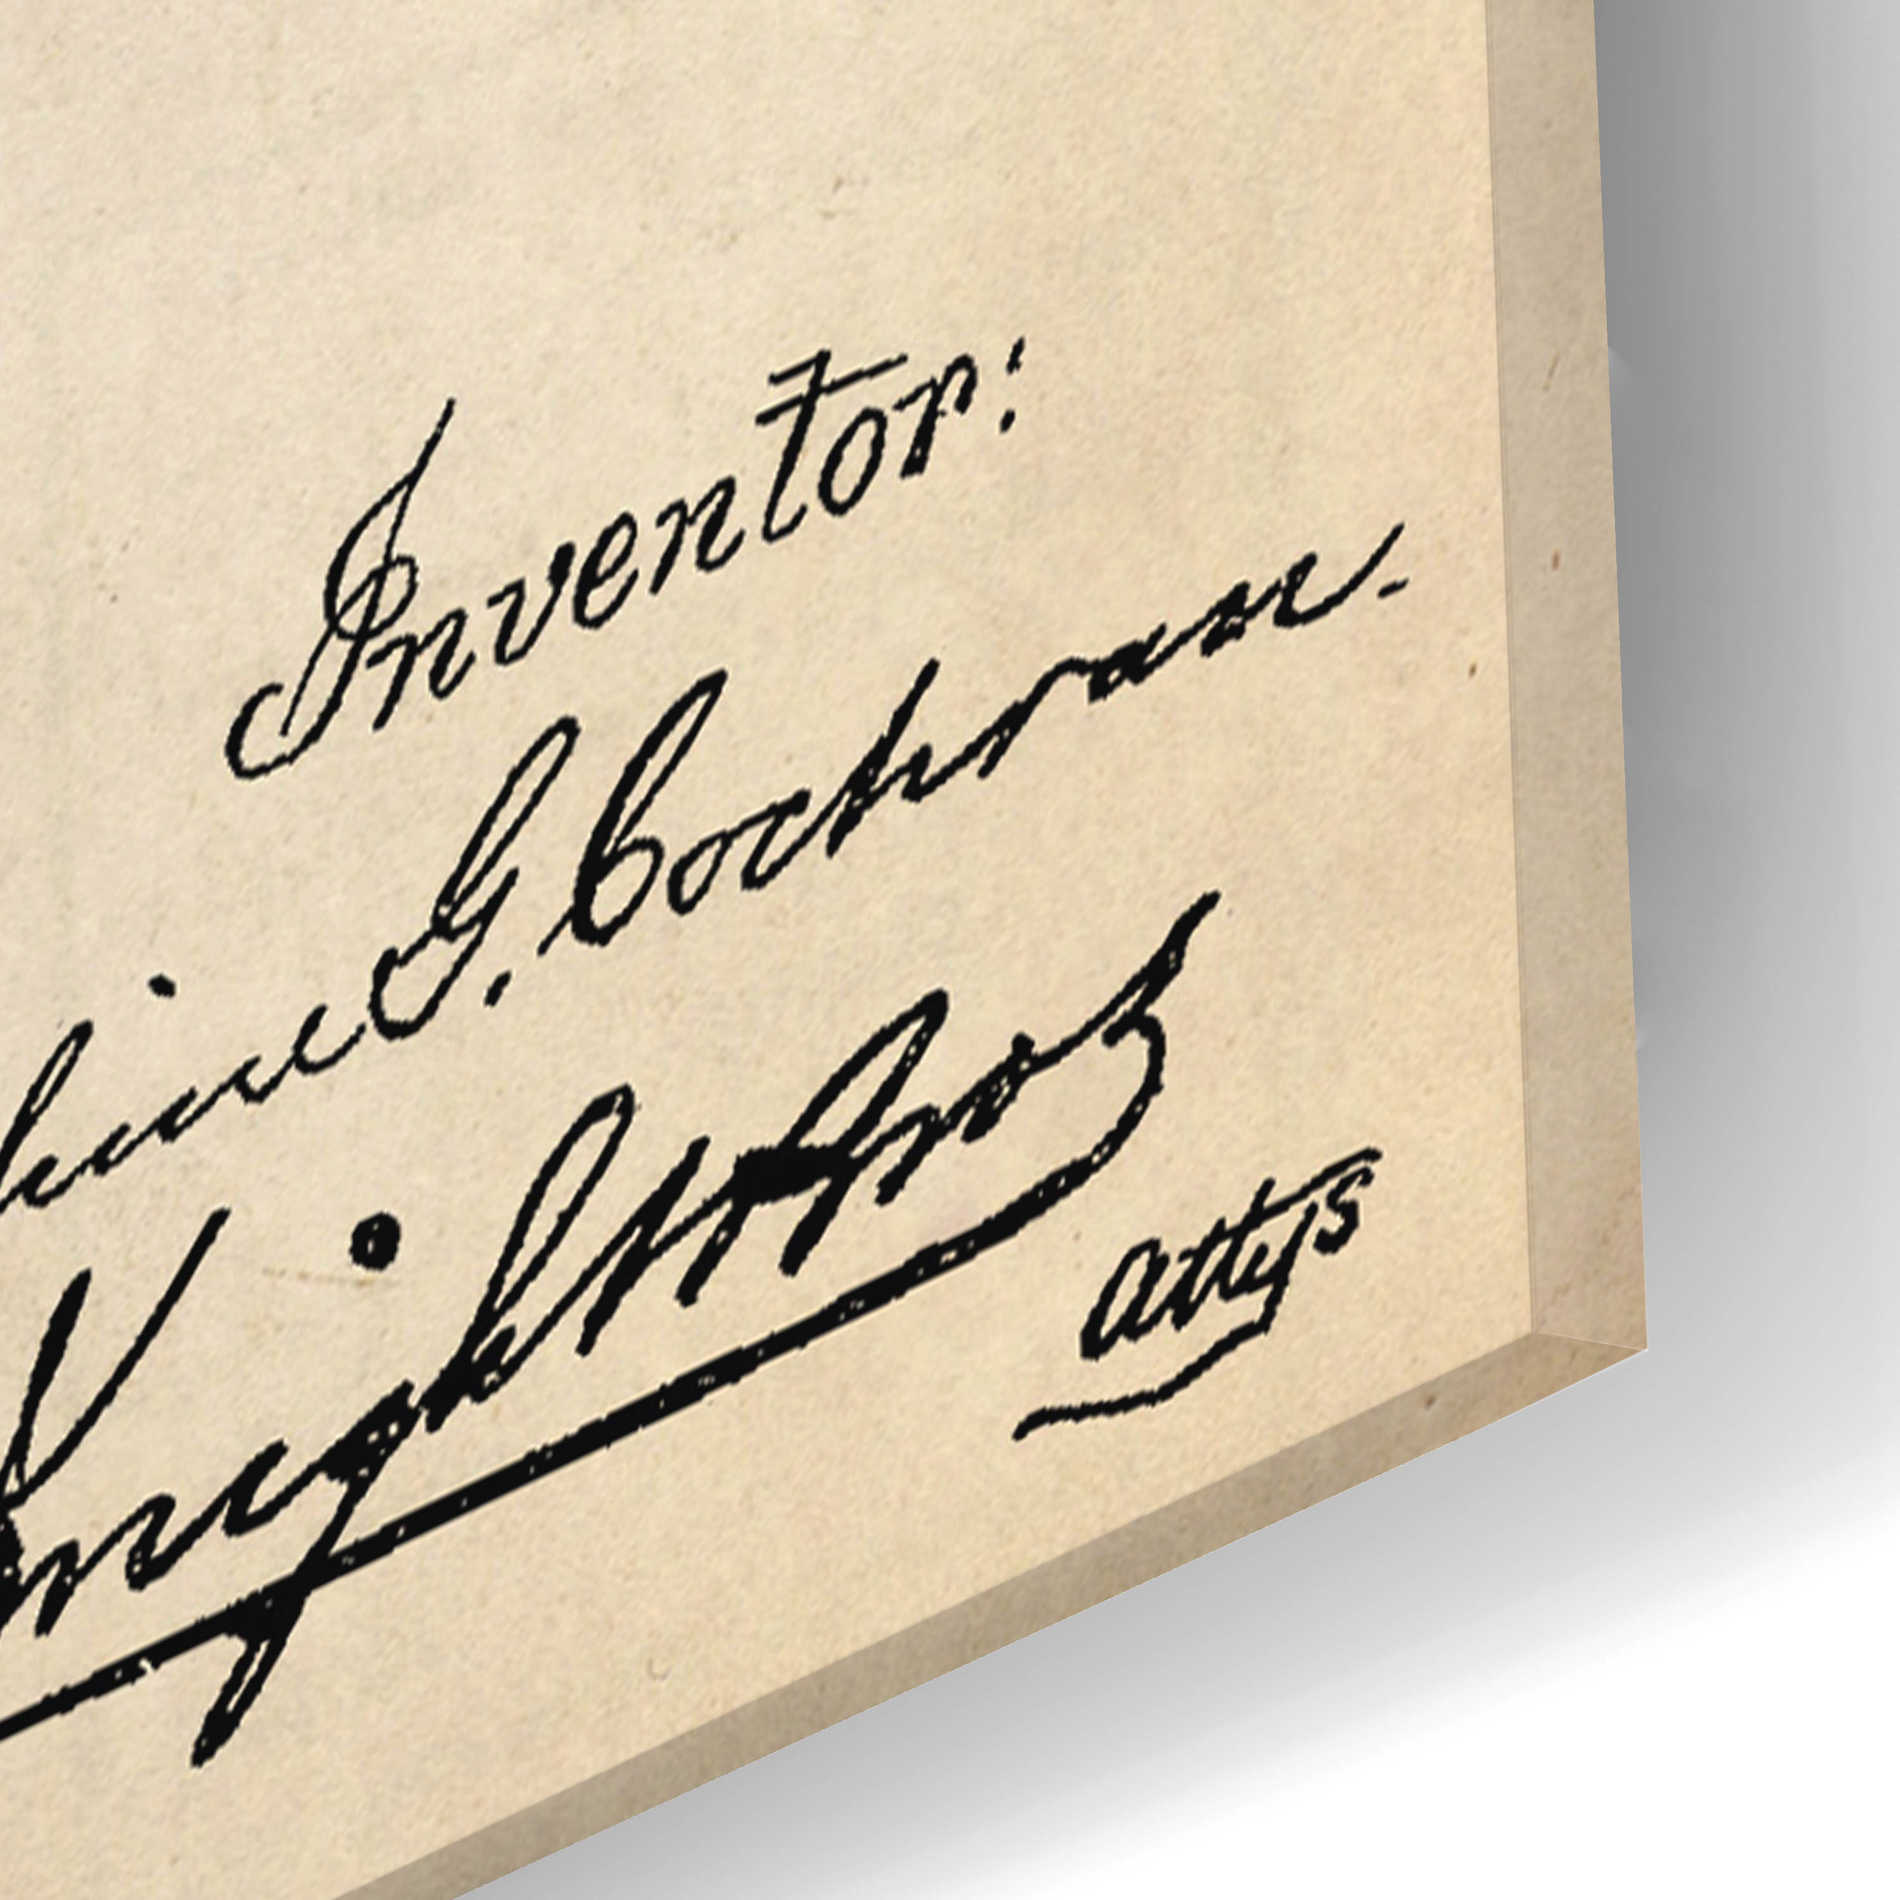 Inventor:
hine G. Cochran.
Knight Bros
Attys